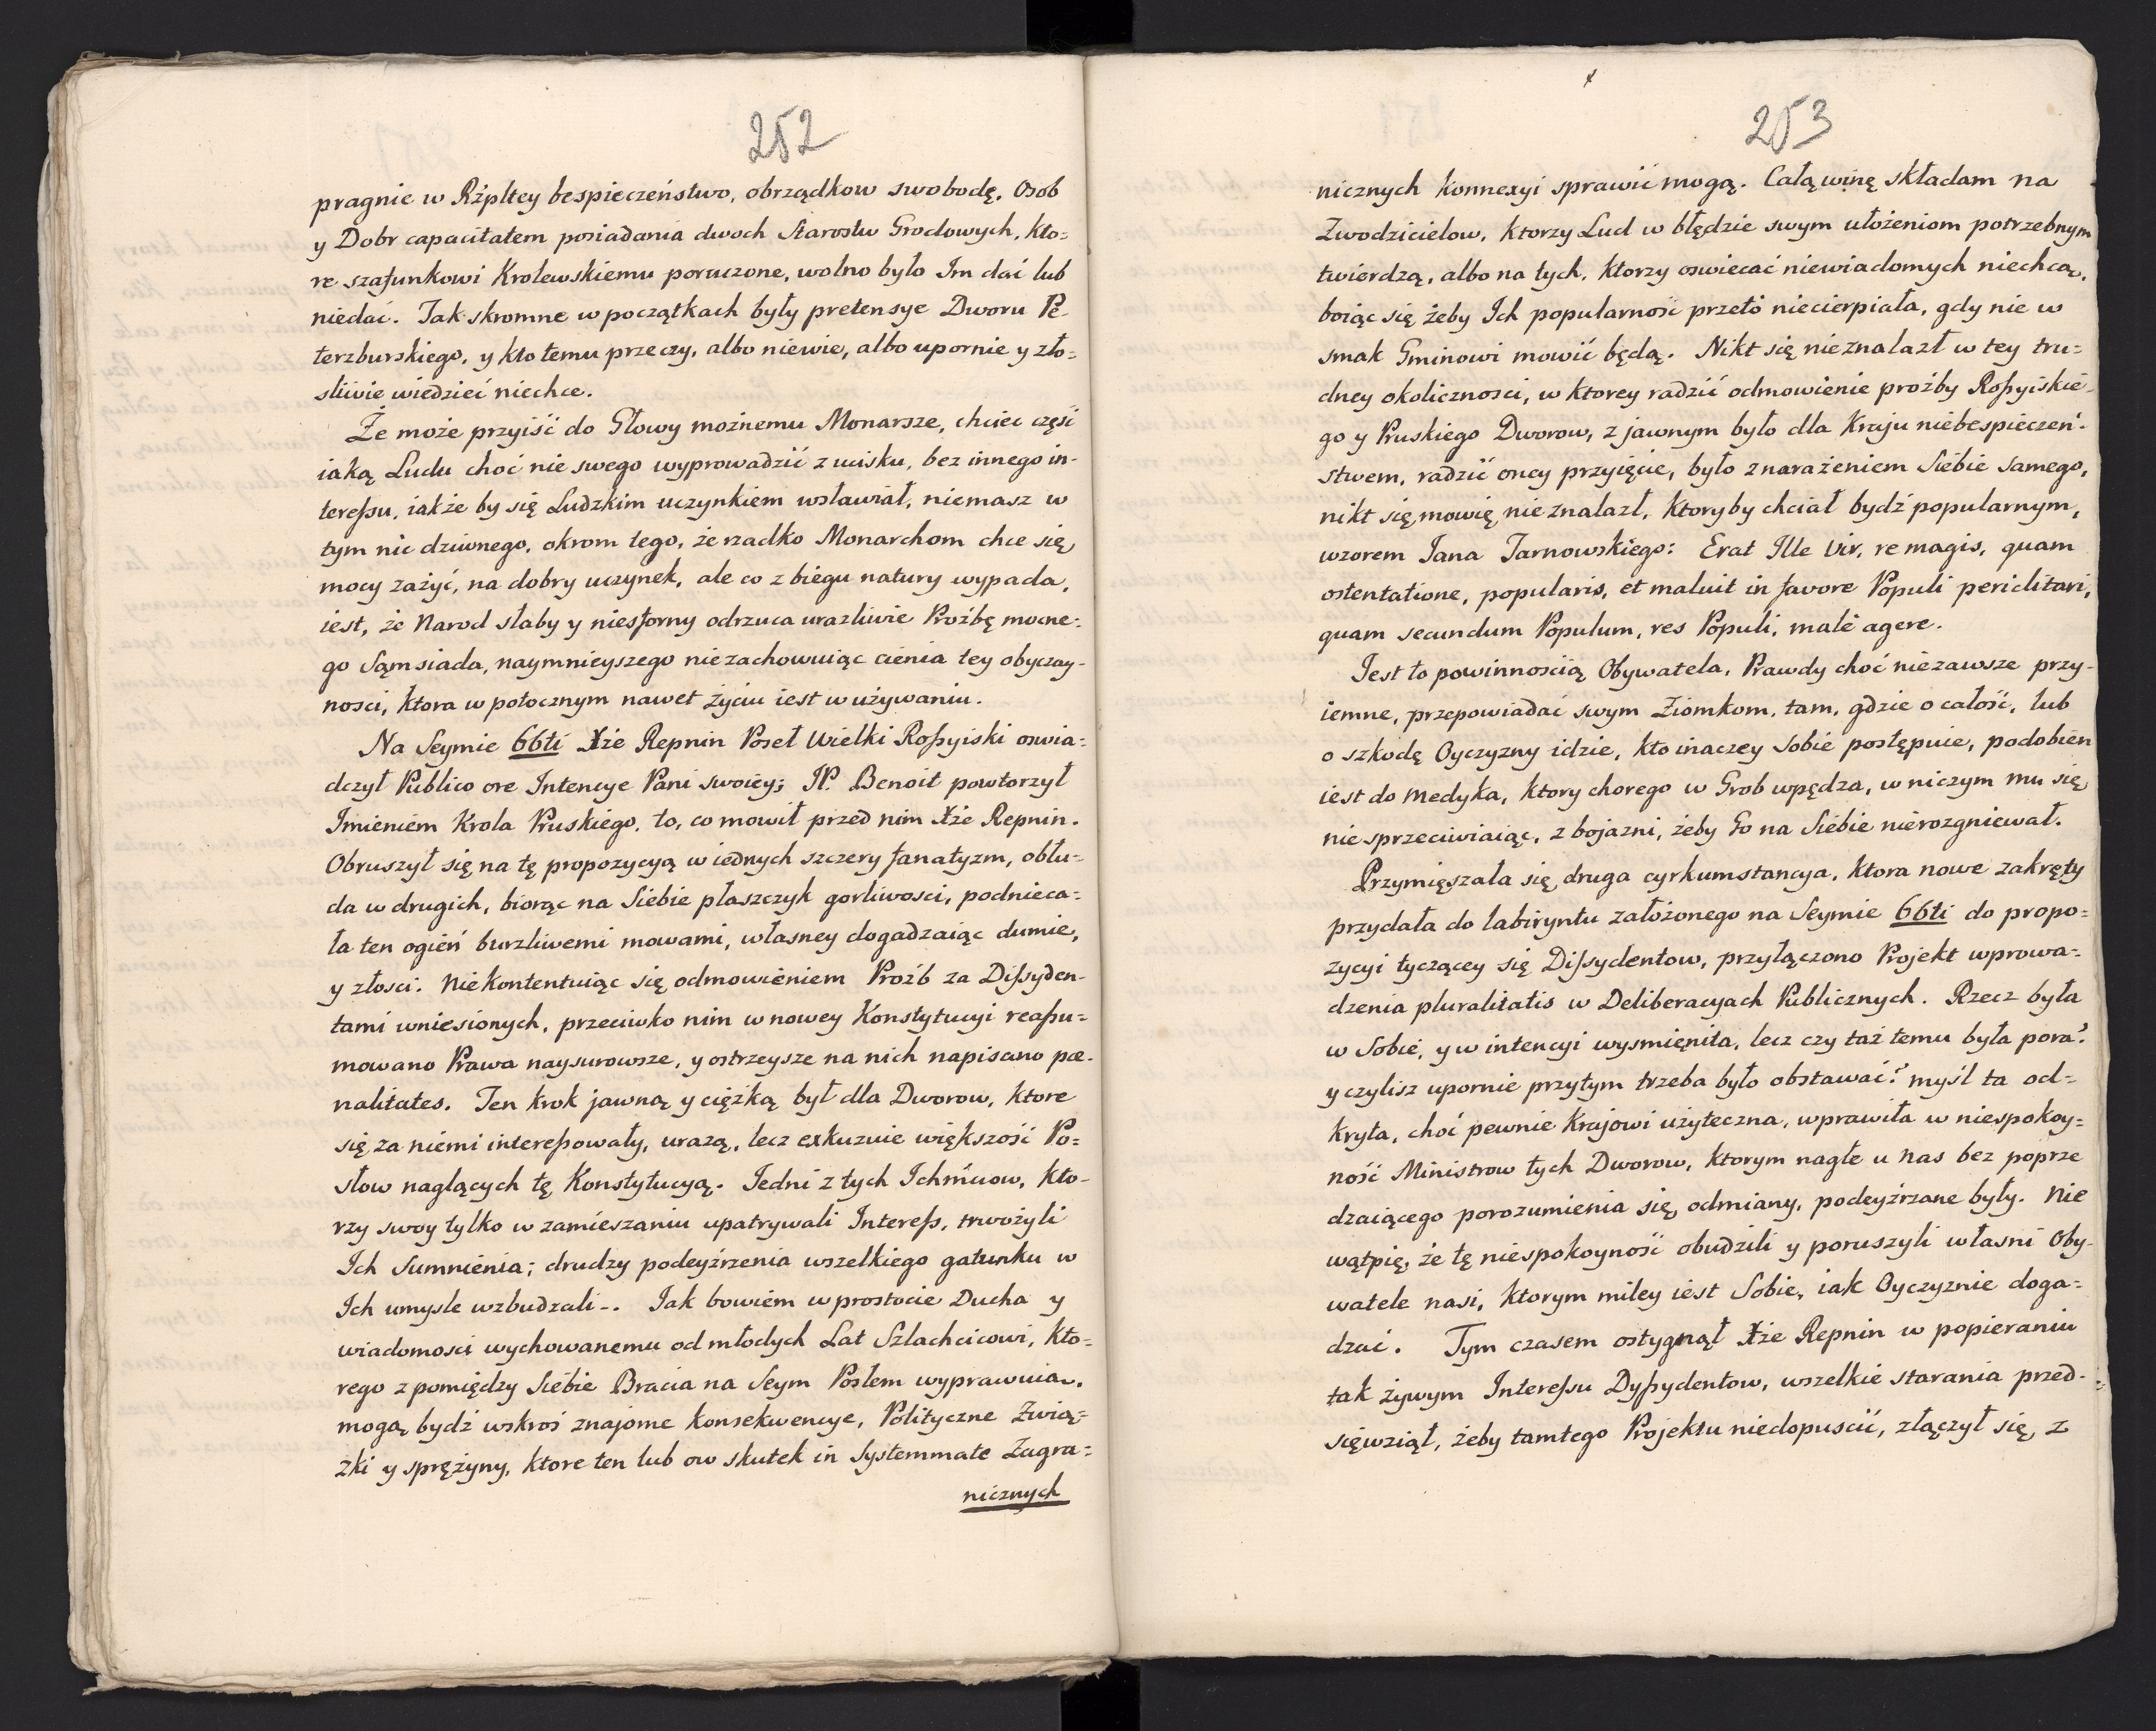 252
pragnie w Rżpltey bespieczeństwo, obrządkow swobodę, Osob
y Dobr capacitatem posiadania dwoch Starostw Grodowych, kto=
re szafunkowi Krolewskiemu poruczone, wolno było Im dać lub
niedać. Tak skromne w początkach były pretensye Dworu Pe-
terzburskiego, y kto temu przeczy, albo niewie, albo upornie y zło=
sliwie wiedzieć niechce.
Że może przyiść do Głowy możnemu Monarsze, chcieć część
iaką Ludu choć nie swego wyprowadzić z ucisku, bez innego in-
teressu, iakże by się Ludzkim uczynkiem wsławiał, niemasz w
tym nic dziwnego, okrom tego, że rzadko Monarchom chce się
mocy zażyć, na dobry uczynek, ale co z biegu natury wypada,
iest, że Narod słaby y niesforny odrzuca urazliwie Proźbę mocne=
go Sąmsiada, naymnieyszego niezachowuiąc cienia tey obyczay-
nosci, ktora w potocznym nawet życiu iest w używaniu.
Na Seymie 66ti Xże Repnin Poseł Wielki Rossyiski oswia=
dczył Publico ore Intencye Pani swoiey; JP. Benoit powtorzył
Imieniem Krola Pruskiego, to, co mowił przed nim Xże Repnin.
Obruszył się na tę propozycyą w iednych szczery fanatyzm, obłu=
da w drugich, biorąc na Siebie płaszczyk gorliwosci, podnieca=
ła ten ogień burzliwemi mowami, własney dogadzaiąc dumie,
y złosci. Niekontentuiąc się odmowieniem Proźb za Dissyden-
tami wniesionych, przeciwko nim w nowey Konstytucyi reassu=
mowano Prawa naysurowsze, y ostrzeysze na nich napisano pœ-
nalitates. Ten krok jawną y ciężką był dla Dworow, ktore
się za niemi interessowały, urazą, lecz exkuzuie większość Po=
słow naglących tę Konstytucyą. Jedni z tych Ichmćiow, kto-
rzy swoy tylko w zamieszaniu upatrywali Interess, trwożyli
Ich Sumnienia; drudzy podeyźrzenia wszelkiego gatunku w
Ich umysle wzbudzali-. Jak bowiem w prostocie Ducha y
wiadomosci wychowanemu od młodych Lat Szlachcicowi, kto=
rego z pomiędzy Siebie Bracia na Seym Posłem wyprawuia,
mogą bydź wskroś znajome konsekwencye, Polityczne Zwią=
zki y sprężyny, ktore ten lub ow skutek in Systemmate Zagra=
nicznych
253
nicznych konnexyi sprawić mogą. Całą winę składam na
Zwodzicielow, ktorzy Lud w błędzie swym ułożeniom potrzebnym
twierdzą, albo na tych, ktorzy oswiecać niewiadomych niechcą,
boiąc się żeby Ich popularność przeto niecierpiała, gdy nie w
smak Gminowi mowić będą. Nikt się nieznalazł w tey tru=
dney okolicznosci, w ktorey radzić odmowienie proźby Rossyiskie-
go y Pruskiego Dworow, z jawnym było dla Kraju niebespieczeń-
stwem, radzić oney przyięcie, było z narażeniem Siebie samego,
nikt się, mowię, nieznalazł, ktoryby chciał bydź popularnym,
wzorem Jana Tarnowskiego: Erat Ille Vir, re magis, quam
ostentatione, popularis, et maluit in favore Populi periclitari,
quam secundum Populum, res Populi, malè agere.
Jest to powinnoscią Obywatela, Prawdy choć niezawsze przy-
iemne, przepowiadać swym Ziomkom, tam, gdzie o całość, lub
o szkodę Oyczyzny idzie, kto inaczey Sobie postępuie, podobien
iest do Medyka, ktory chorego w Grob wpędza, w niczym mu się
nie sprzeciwiaiąc, z bojazni, żeby Go na Siebie nierozgniewał.
Przymięszała się druga cyrkumstancya, ktora nowe zakręty
przydała do labiryntu założonego na Seymie 66ti do propo=
zycyi tyczącey się Dissydentow, przyłączono Projekt wprowa=
dzenia pluralitatis w Deliberacyach Publicznych. Rzecz była
w Sobie, y w intencyi wysmienita, lecz czy taż temu była pora?
y czylisz upornie przytym trzeba było obstawać? myśl ta od=
kryta, choć pewnie Krajowi użyteczna, wprawiła w niespokoy=
ność Ministrow tych Dworow, ktorym nagłe u nas bez poprze
dzaiącego porozumienia się, odmiany, podeyźrzane były. Nie
wątpię, że tę niespokoyność obudzili y poruszyli własni Oby-
watele nasi, ktorym miley iest Sobie, iak Oyczyznie doga=
dzać. Tym czasem ostygnął Xże Repnin w popieraniu
tak żywym Interessu Dyssydentow, wszelkie starania przed-
sięwziął, żeby tamtego Projektu niedopuscić, złączył się, z